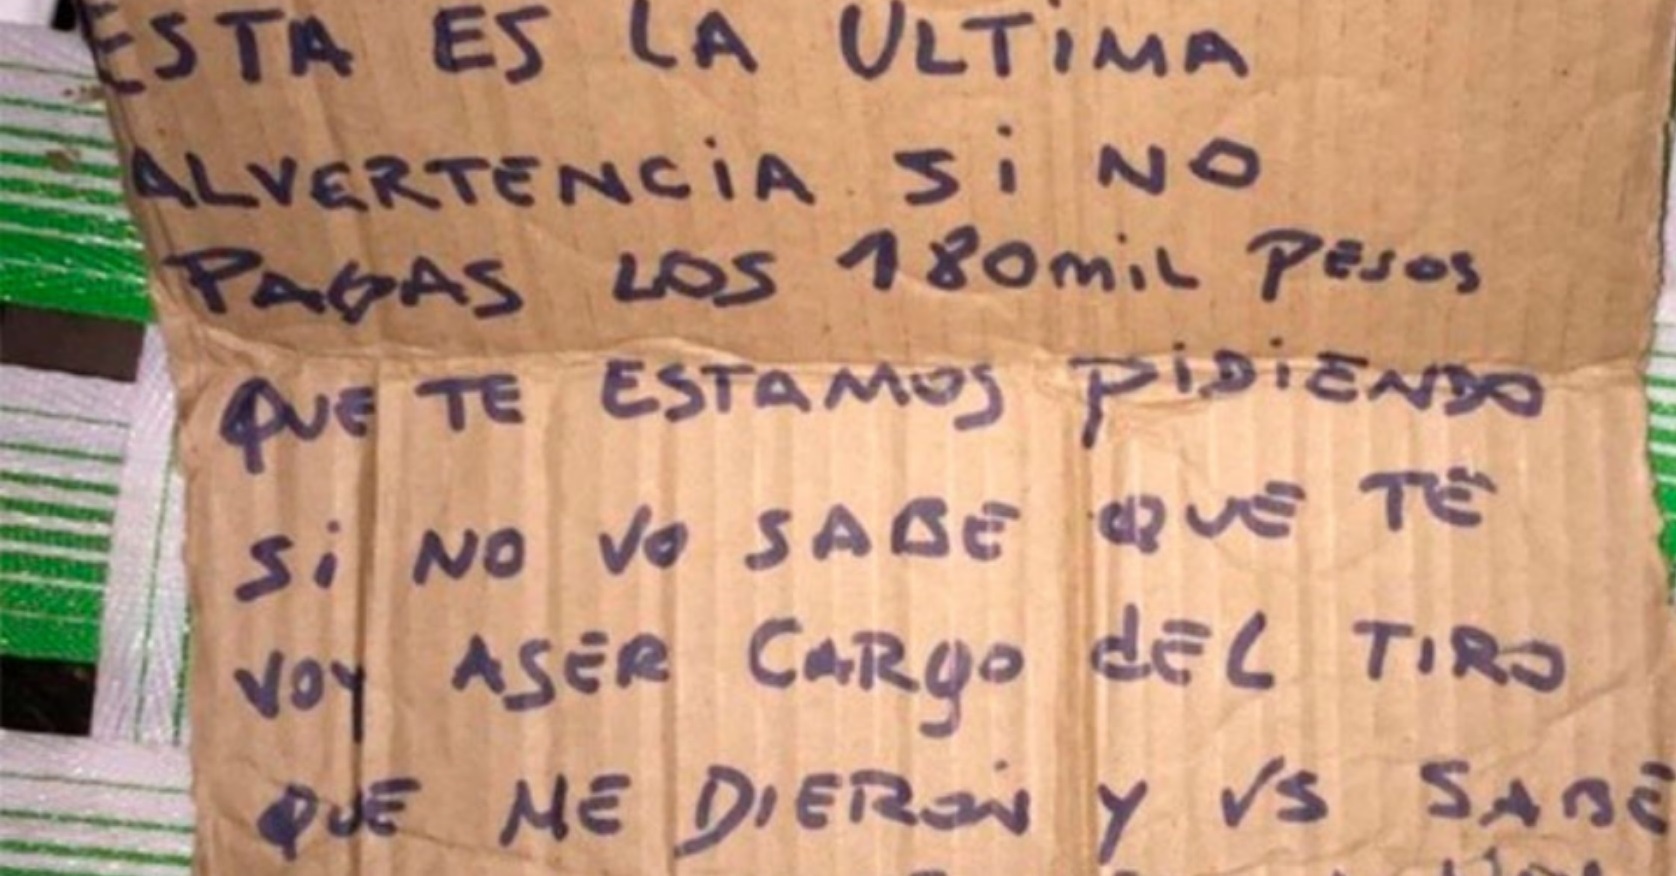 ESTA ES LA ULTIMA
ALVERTENCIA SI NO
PAGAS LOS 180MIL PESOS
QUE TE ESTAMOS PIDIENDO
SI NO VO SABE QUE TE
VOY ASER CARGO dEL TIRO
QUE ME DIERON Y VS SABE